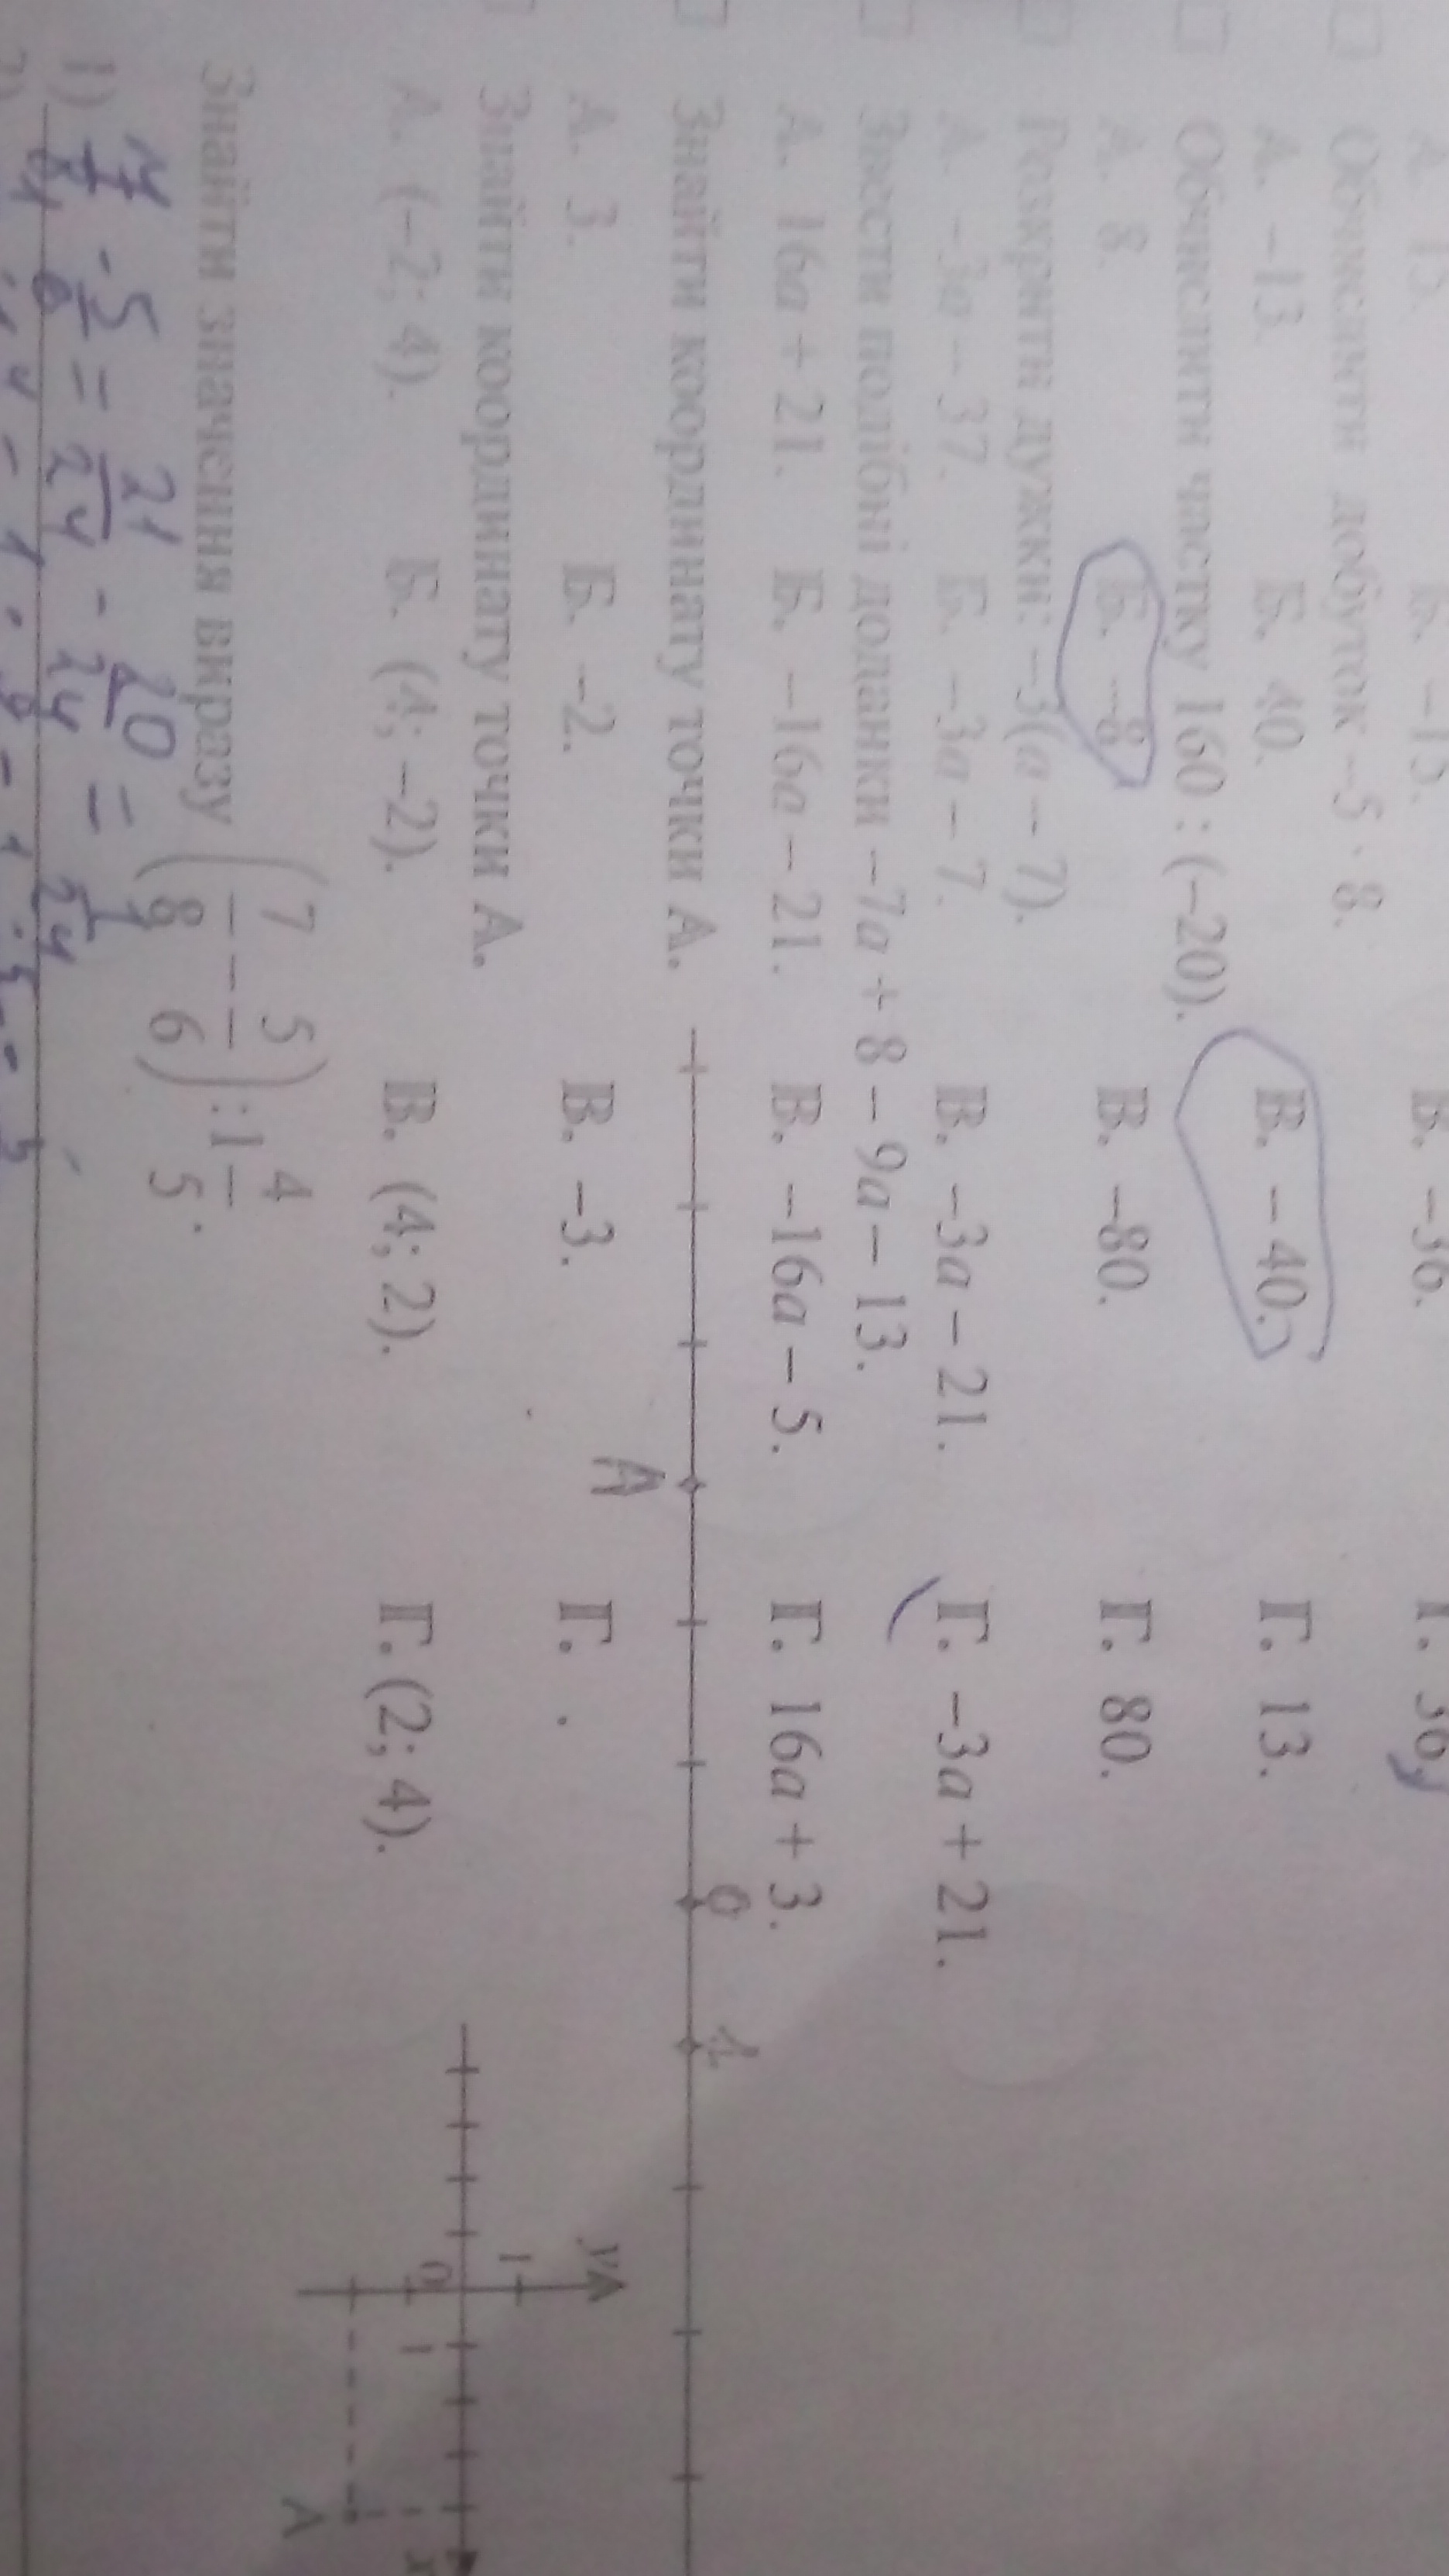 А. 15. Б. –15. В. –36. Г. 36
Обчислити добуток –5 · 8.
А. –13. Б. 40. В. –40. Г. 13.
Обчислити частку 160 : (–20).
А. 8. Б. –8. В. –80. Г. 80.
Розкрити дужки: –3(a – 7).
А. –3a – 37. Б. –3a – 7. В. –3a – 21. Г. –3a + 21.
Звести подібні доданки –7a + 8 – 9a – 13.
А. 16a + 21. Б. –16a – 21. В. –16a – 5. Г. 16a + 3.
Знайти координату точки А. A 0 1
А. 3. Б. –2. В. –3. Г. .
Знайти координату точки А.
А. (–2; 4). Б. (4; –2). В. (4; 2). Г. (2; 4).
y 1 0 1 x A
Знайти значення виразу (7/8 – 5/6) : 1 4/5.
1) - 5/6 = 21/24 - 20/24 = 1/24